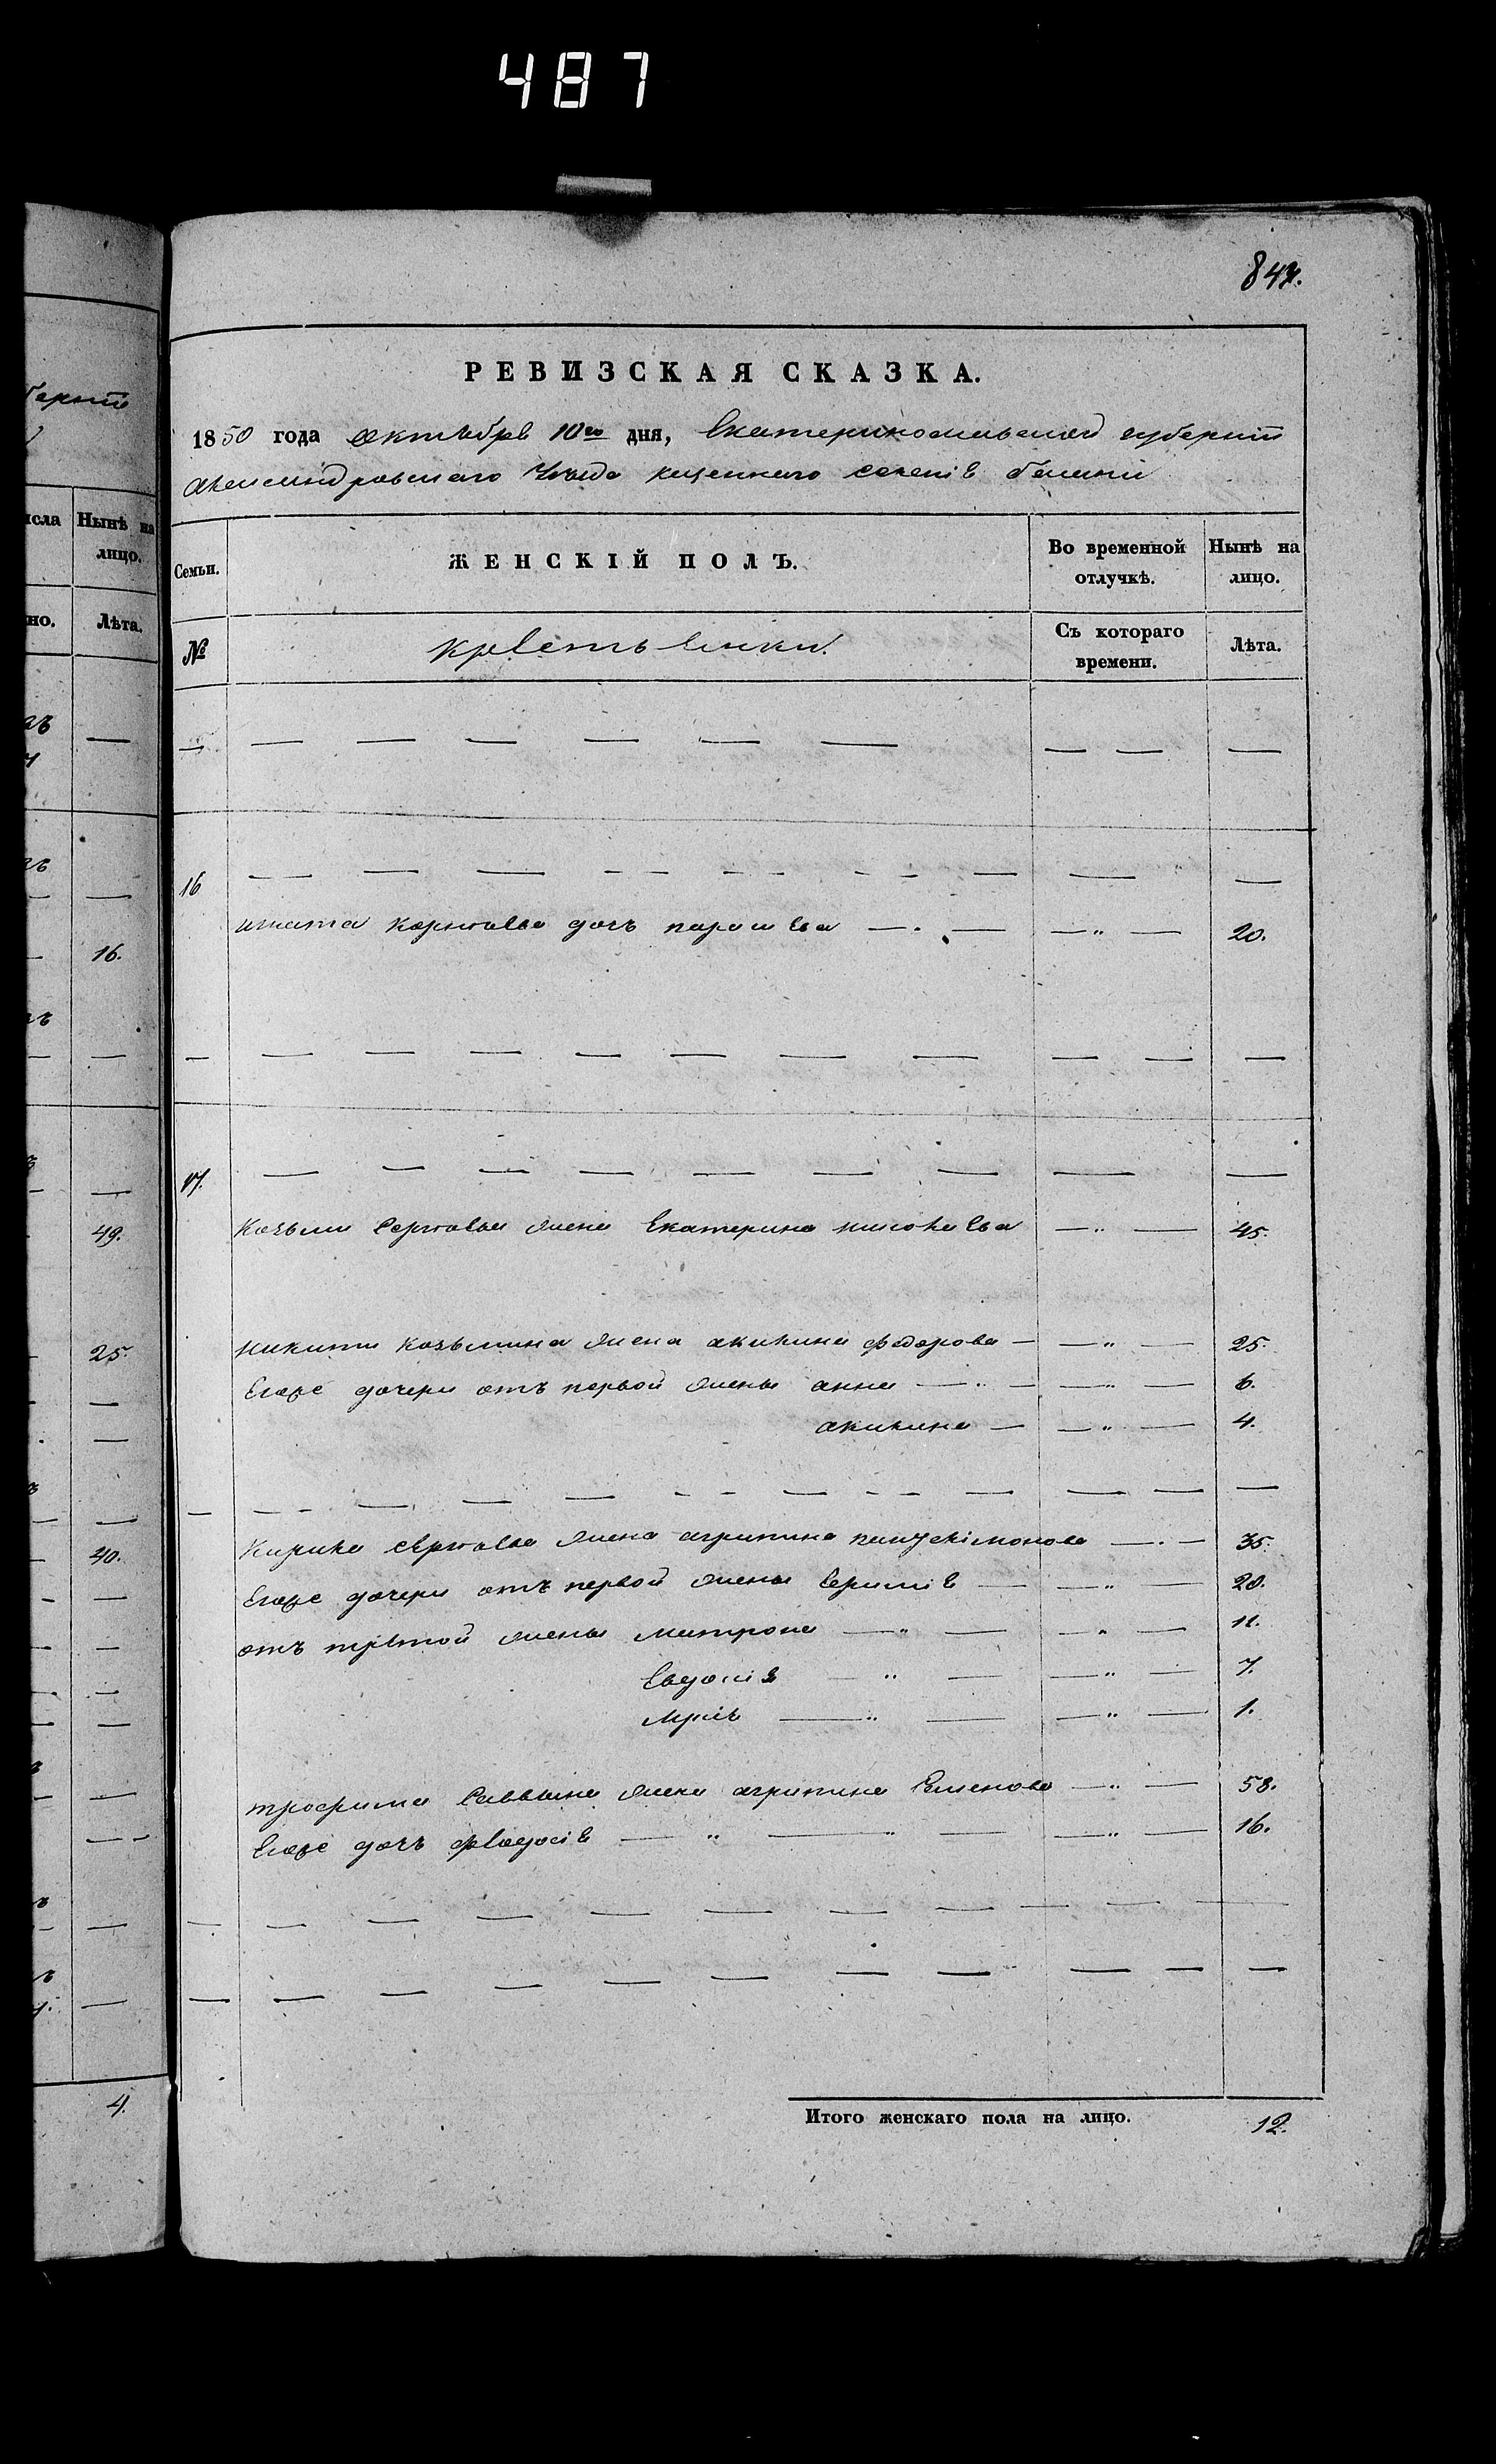 487
843.
РЕВИЗСКАЯ СКАЗКА.
1850 года октября 10го дня, Екатеринославской губернии
Александровского уезда селения
Семьи. ЖЕНСКІЙ ПОЛЪ. Во временной отлучкѣ. Нынѣ на лицо.
№ крестьянки. Съ котораго времени. Лѣта.
16
игната дочь 20.
17.
Козьмы жена Екатерина 45.
Никиты Козьмина жена акилина федорова 25.
Егоже дочери отъ первой жены анна 6.
акилина 4.
Кирила жена агрипина 35.
Егоже дочери отъ первой жены 20.
отъ третой жены Матрона 11.
Евдокія 7.
1.
трофима Саввина жена агрипина Семенова 58.
Егоже дочь феодосія 16.
Итого женскаго пола на лицо. 12.
исла Нынѣ на лицо.
но. Лѣта.
16.
49.
25.
40.
4.